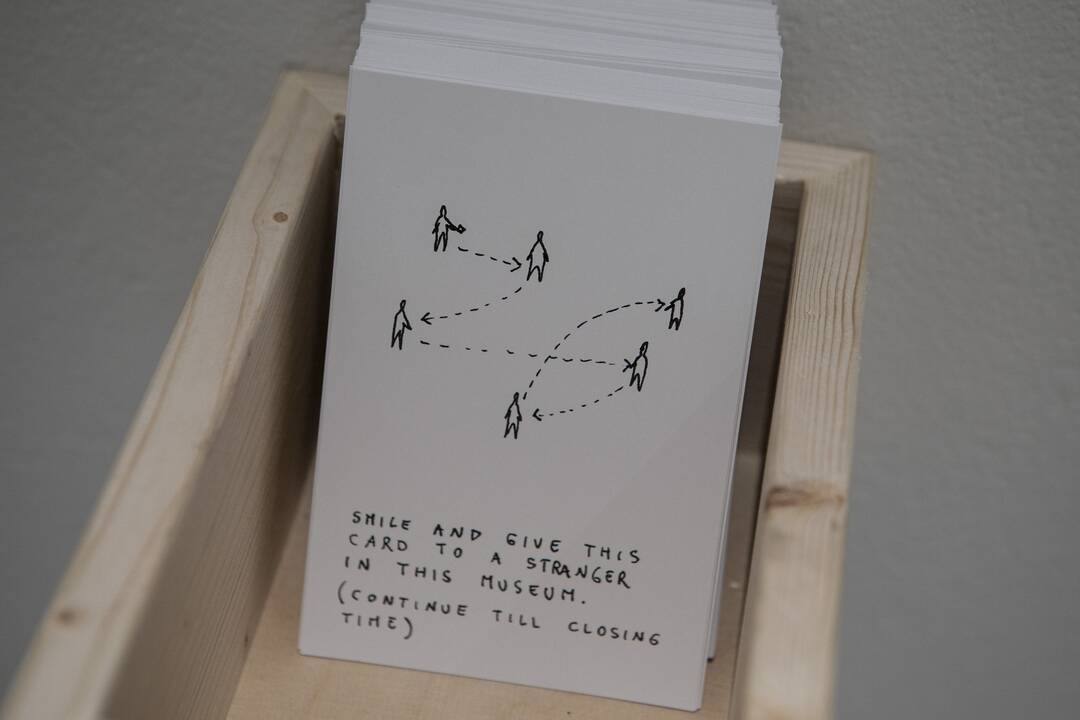 SMILE AND GIVE THIS
CARD TO A STRANGER
IN THIS MUSEUM.
(CONTINUE TILL CLOSING
TIME)